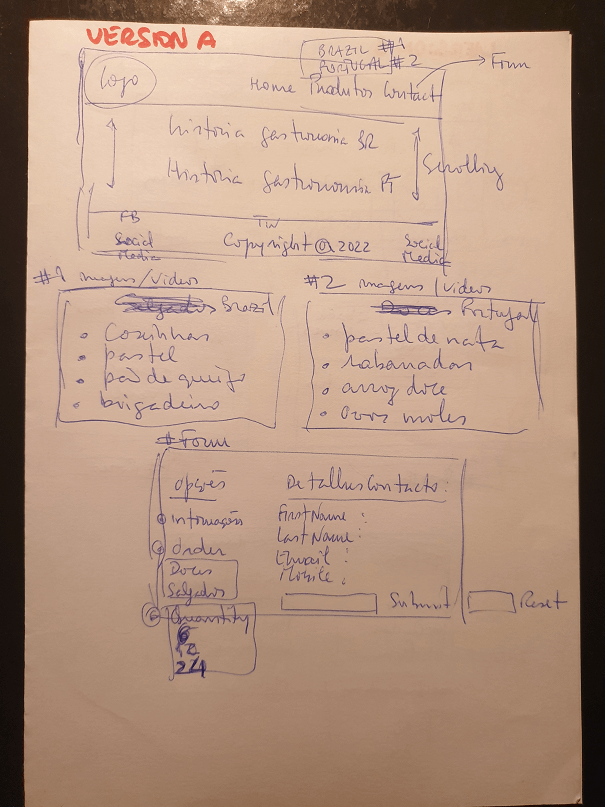 VERSION A
BRAZIL #1
PORTUGAL #2
Form
Logo
Home Produtos Contact
história gastronomia BR
História gastronomia PT
Scrolling
FB
TW
Social Media
Copyright @ 2022
Social Media
#1 imagens/Videos
Salgados Brazil
• Coxinhas
• pastel
• pão de queijo
• brigadeiro
#2 imagens/Videos
Doces Portugal
• pastel de nata
• rabanadas
• arroz doce
• ovos moles
# Form
opções
informações
order
Doces
Salgados
Quantity
6
12
24
Detalhes Contacto:
First Name:
Last Name:
Email:
Mobile:
Submit
Reset